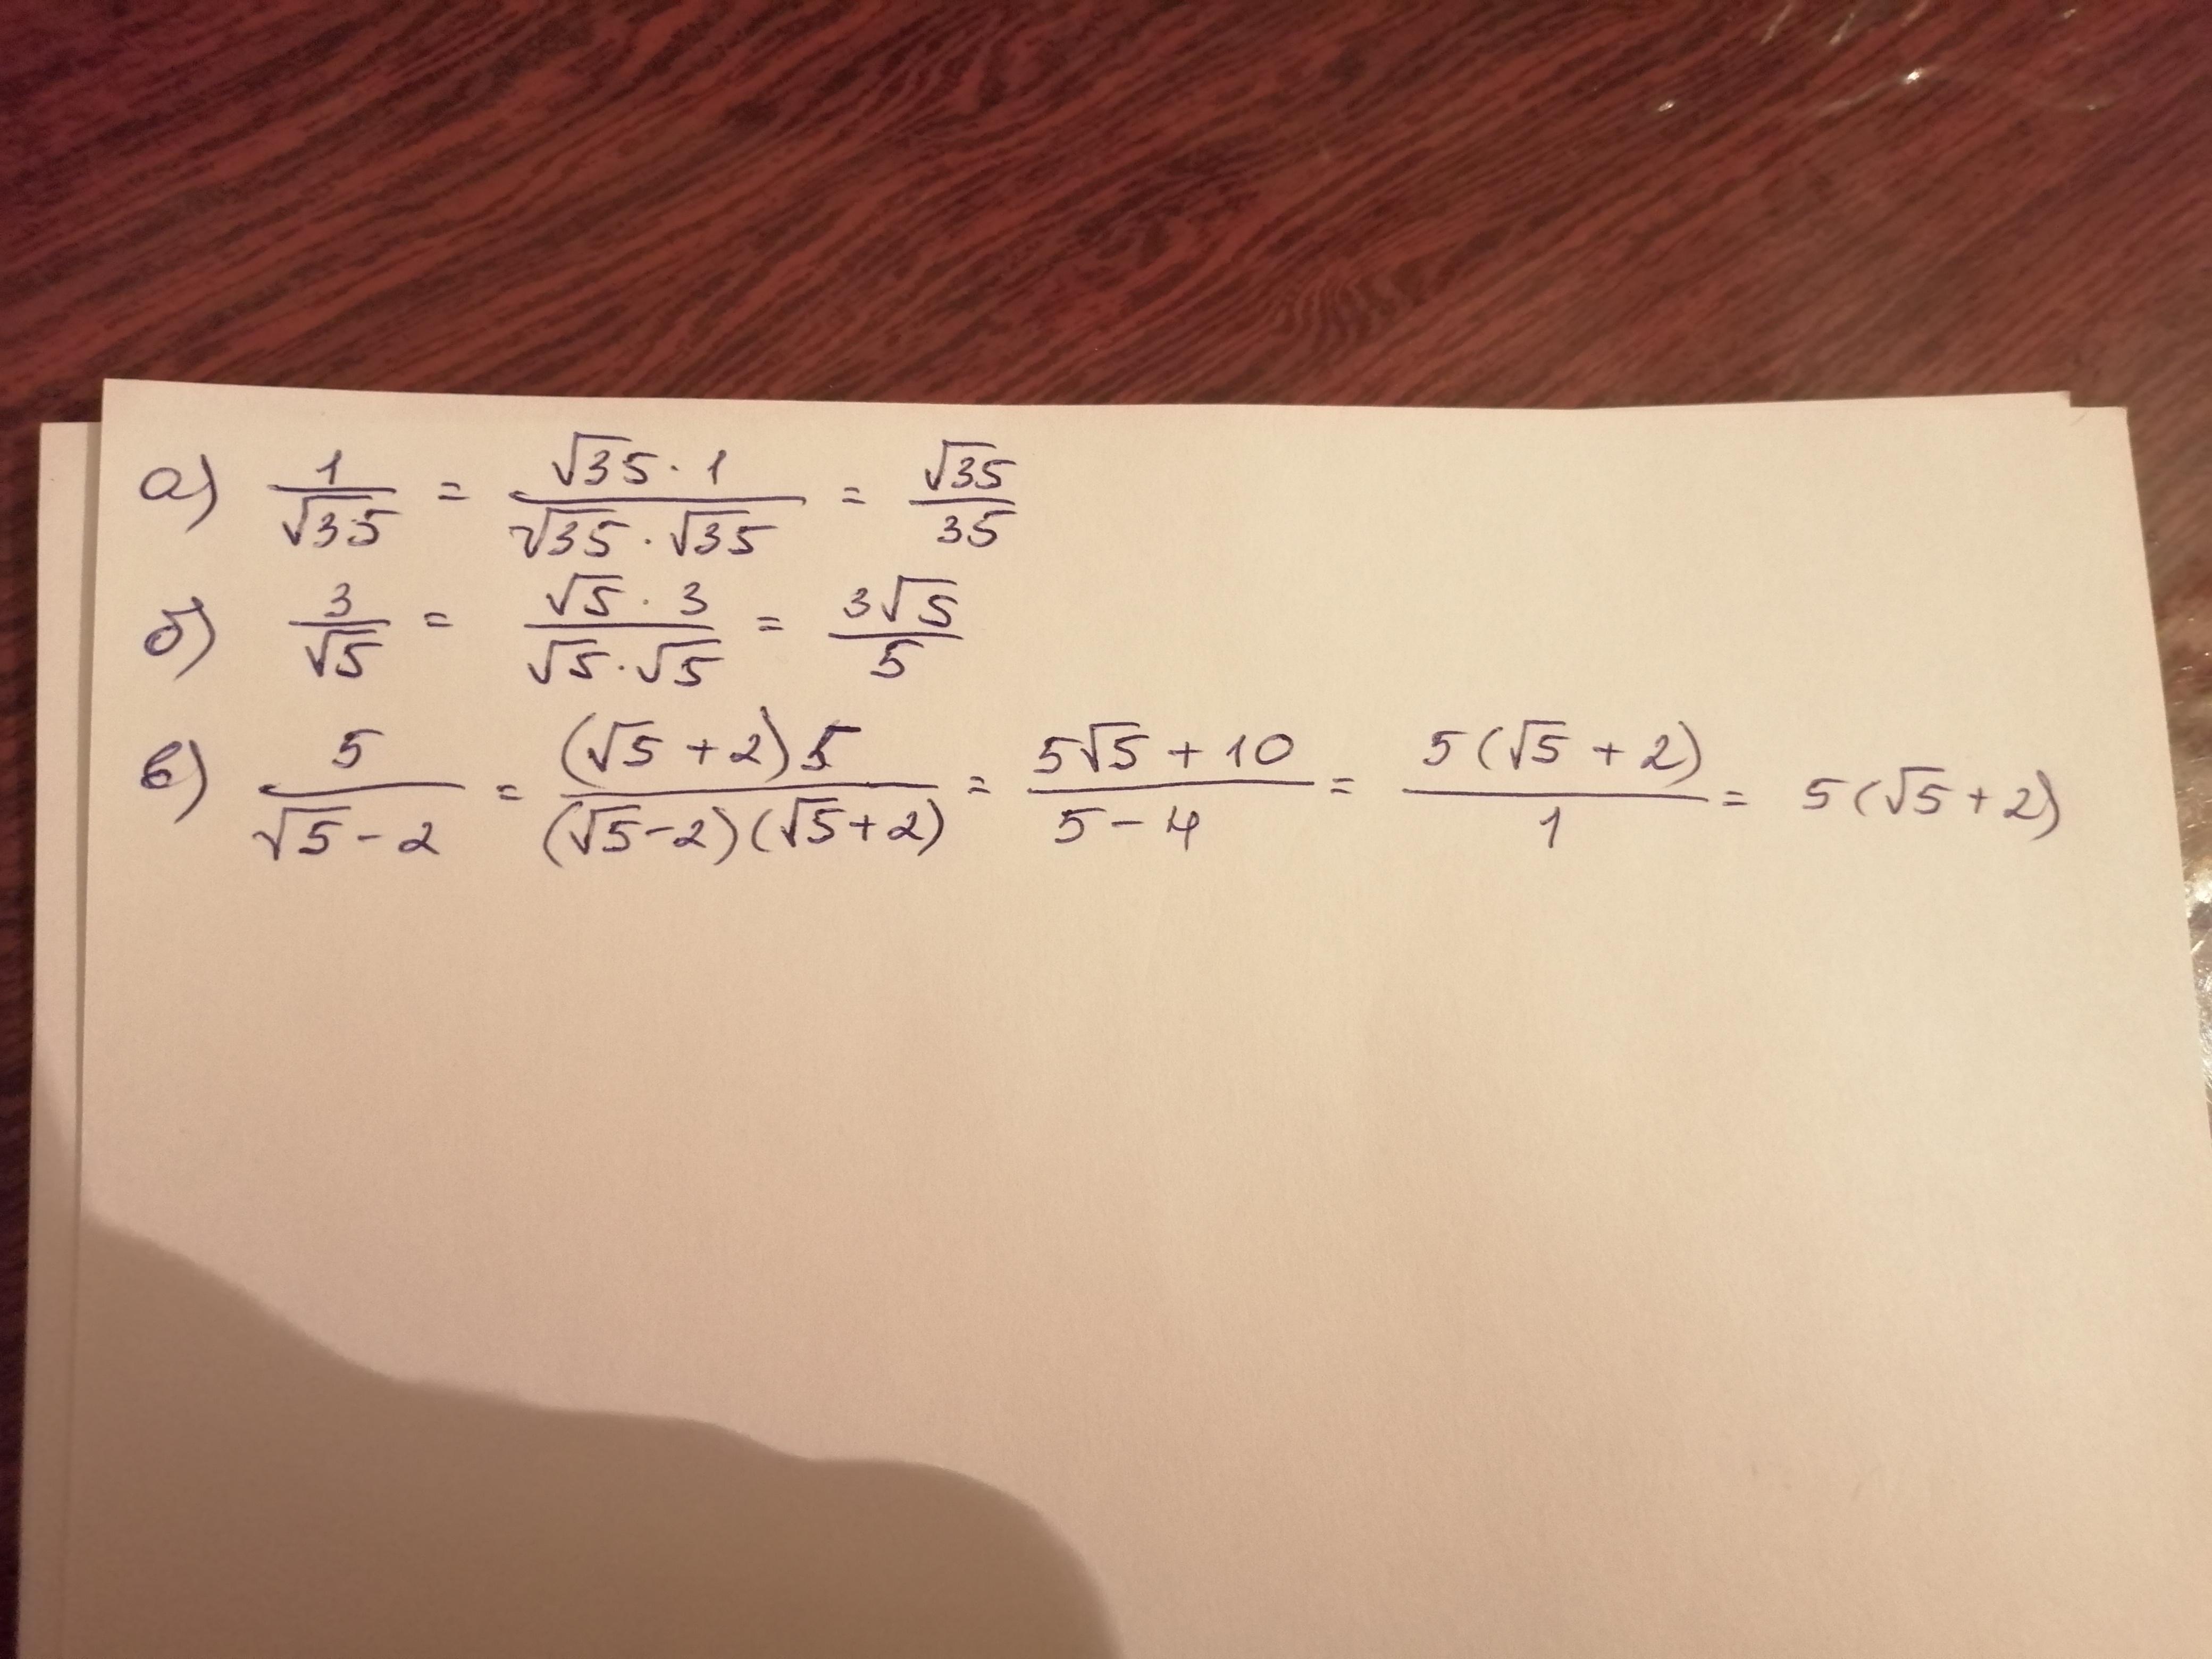 а) 1/√35 = √35·1/√35·√35 = √35/35
б) 3/√5 = √5·3/√5·√5 = 3√5/5
в) 5/√5-2 = (√5+2)5/(√5-2)(√5+2) = 5√5+10/5-4 = 5(√5+2)/1 = 5(√5+2)